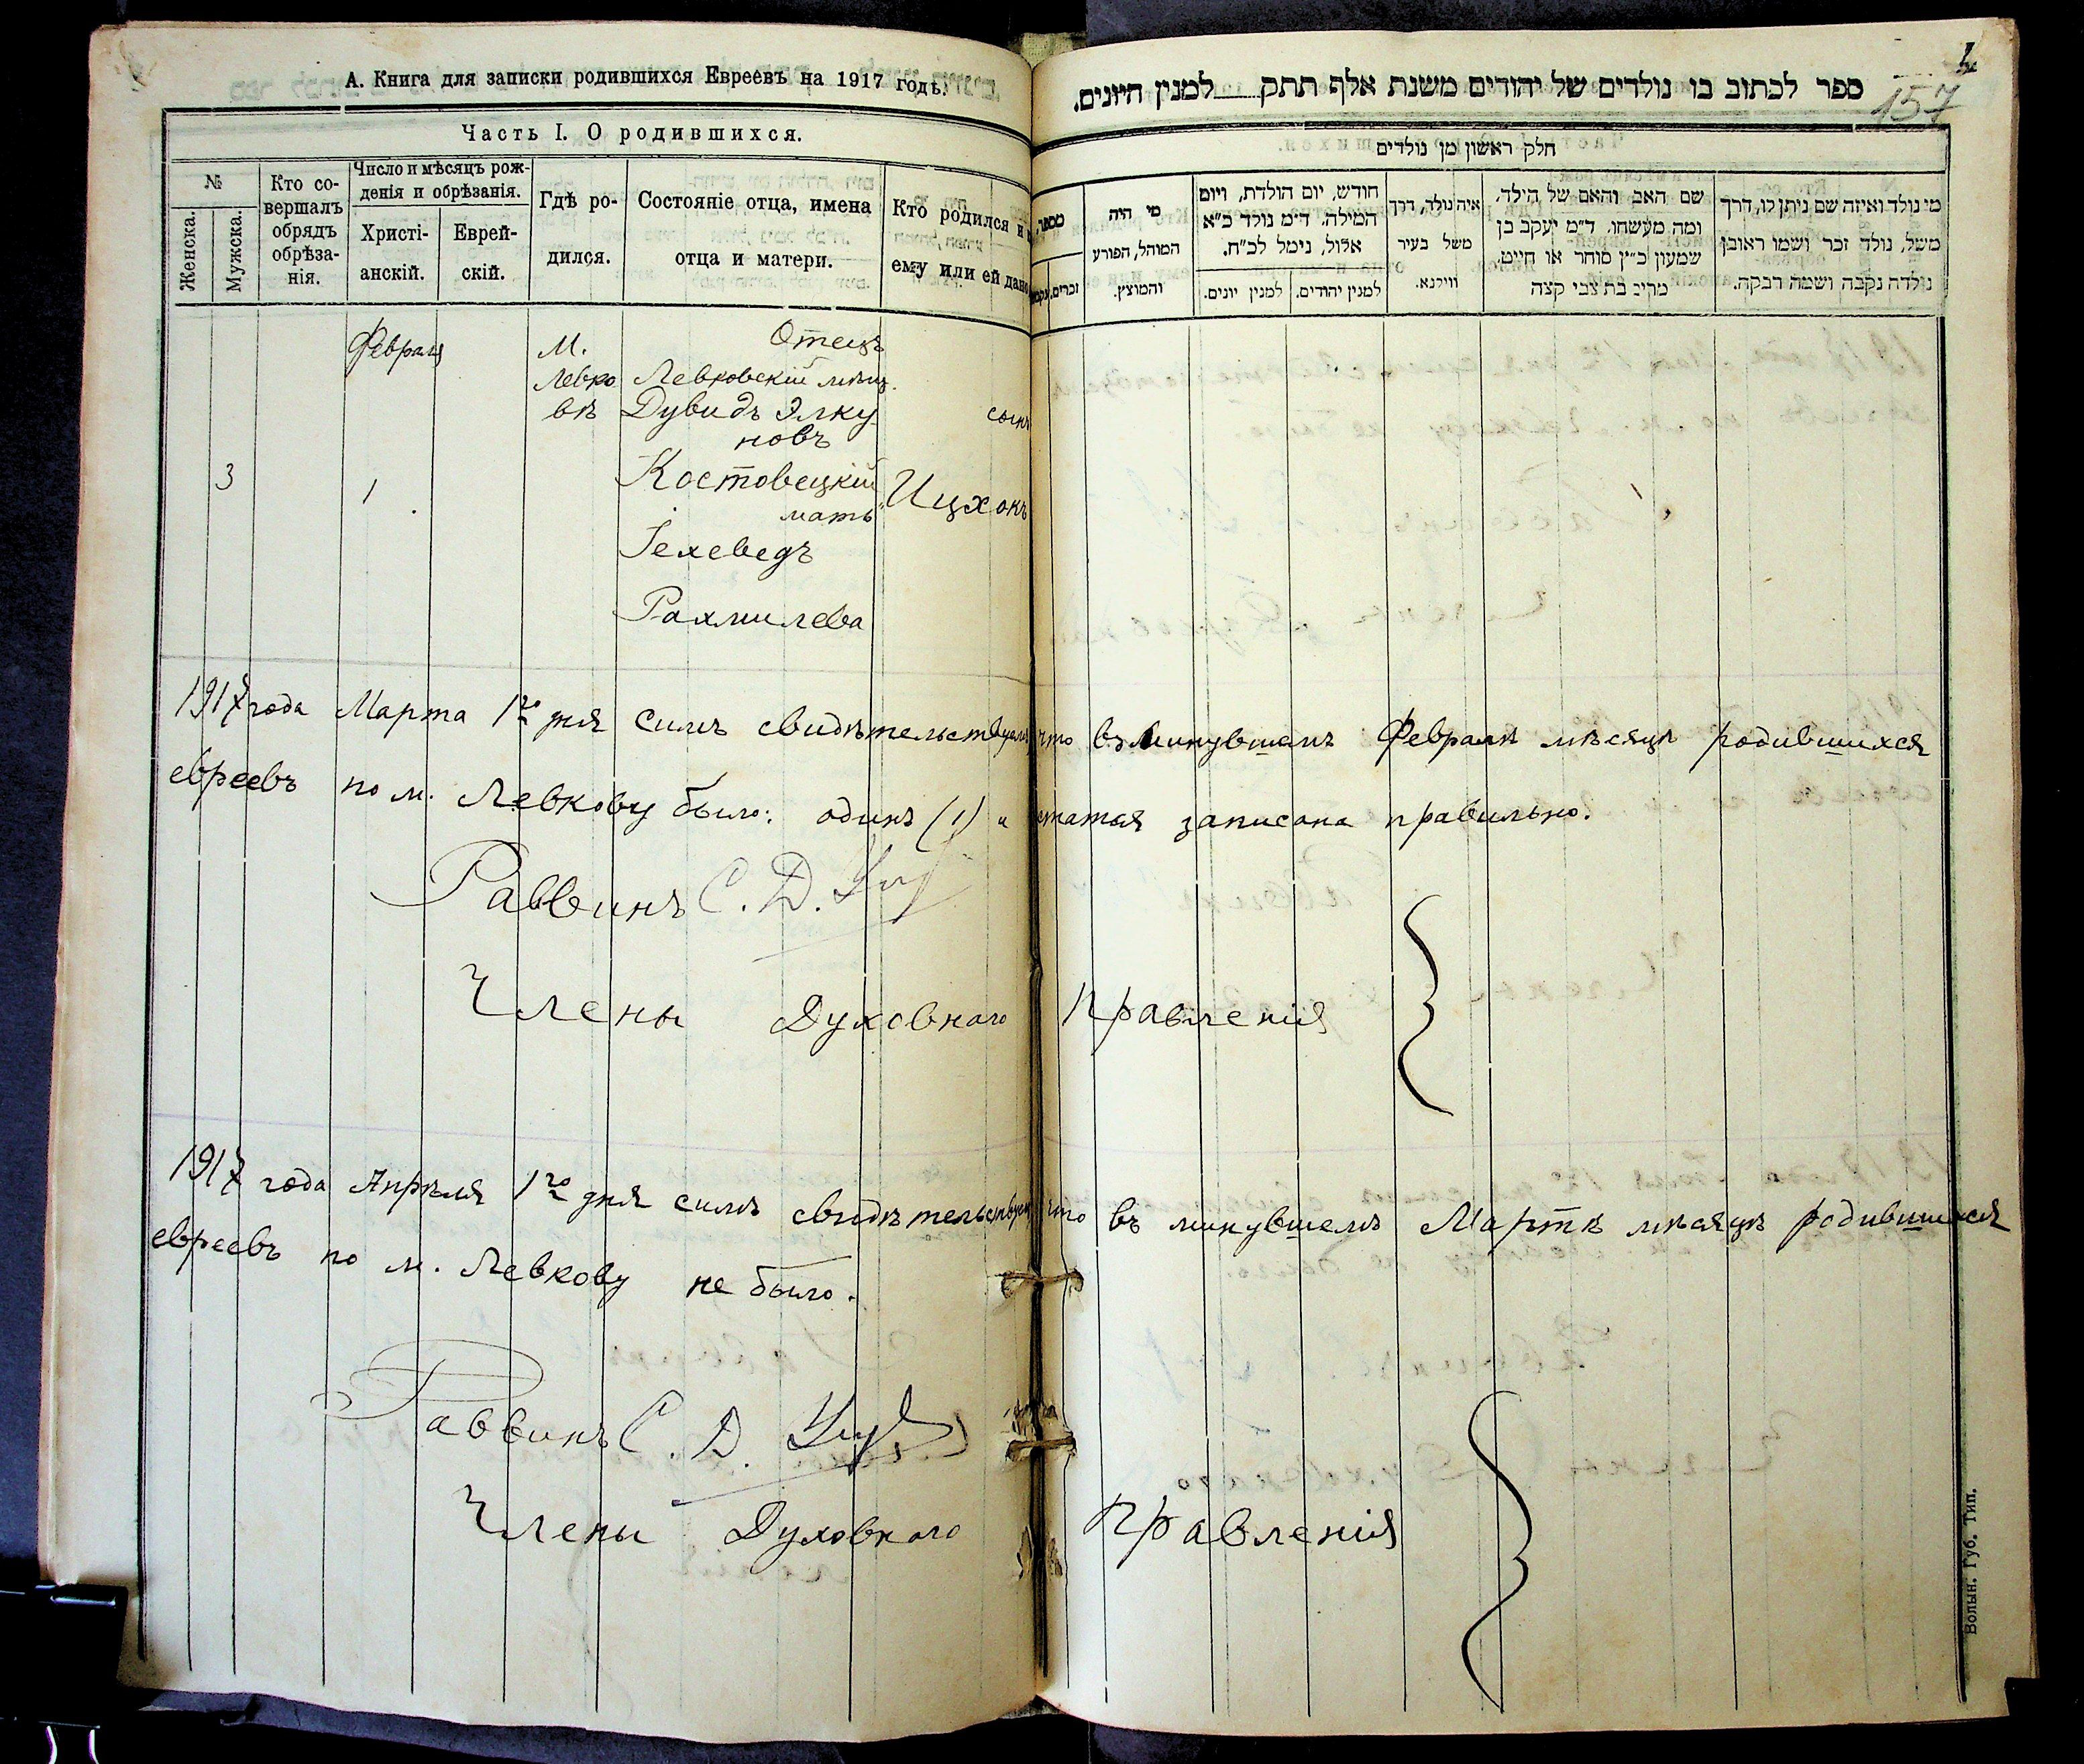 А. Книга для записки родившихся Евреевъ на 1917 годъ.
Часть I. О родившихся.
№
Женска.
Мужска.
Кто со-
вершалъ
обрядъ
обрѣза-
нія.
Число и мѣсяцъ рож-
денія и обрѣзанія.
Христі-
анскій.
Еврей-
скій.
Гдѣ ро-
дился.
Состояніе отца, имена
отца и матери.
Кто родился и
ему или ей дано
3
Февраля
1
М.
Левко
вѣ
Отецъ
Левковскій мѣщ.
Дувидъ Элку
новъ
Костовецкій
мать
Іехеведъ
Рахмилева
сынъ
Ицхокъ
ספר לכתוב בו נולדים של יהודים משנת אלף תתק למנין היונים.
157
חלק ראשון מן נולדים
מי נולד ואיזה שם ניתן לו, דרך
משל, נולד זכר ושמו ראובן
נולדה נקבה ושמה רבקה.
שם האב והאם של הילד,
ומה מעשהו. ד״מ יעקב בן
שמעון כ״ץ סוחר או חייט,
מרים בת צבי קצה
איה נולד, דרך
משל בעיר
ווילנא.
חודש, יום הולדת, ויום
המילה. ד״מ נולד כ״א
אלול, נימל לכ״ח.
למנין יהודים.
למנין יונים.
מי היה
המוהל, הפורע
והמוצץ.
מספר
זכרים.
1917 года Марта 1го дня симъ свидѣтельствуемъ что въ минувшемъ Февралѣ мѣсяцѣ родившихся
евреевъ по м. Левкову было: одинъ (1) и статья записана правильно.
Раввинъ С. Д.
Члены Духовнаго Правленія
1917 года Апрѣля 1го дня симъ свидѣтельствуемъ что въ минувшемъ Мартѣ мѣсяцѣ родившихся
евреевъ по м. Левкову не было.
Раввинъ С. Д.
Члены Духовнаго Правленія
Волын. Губ. Тип.